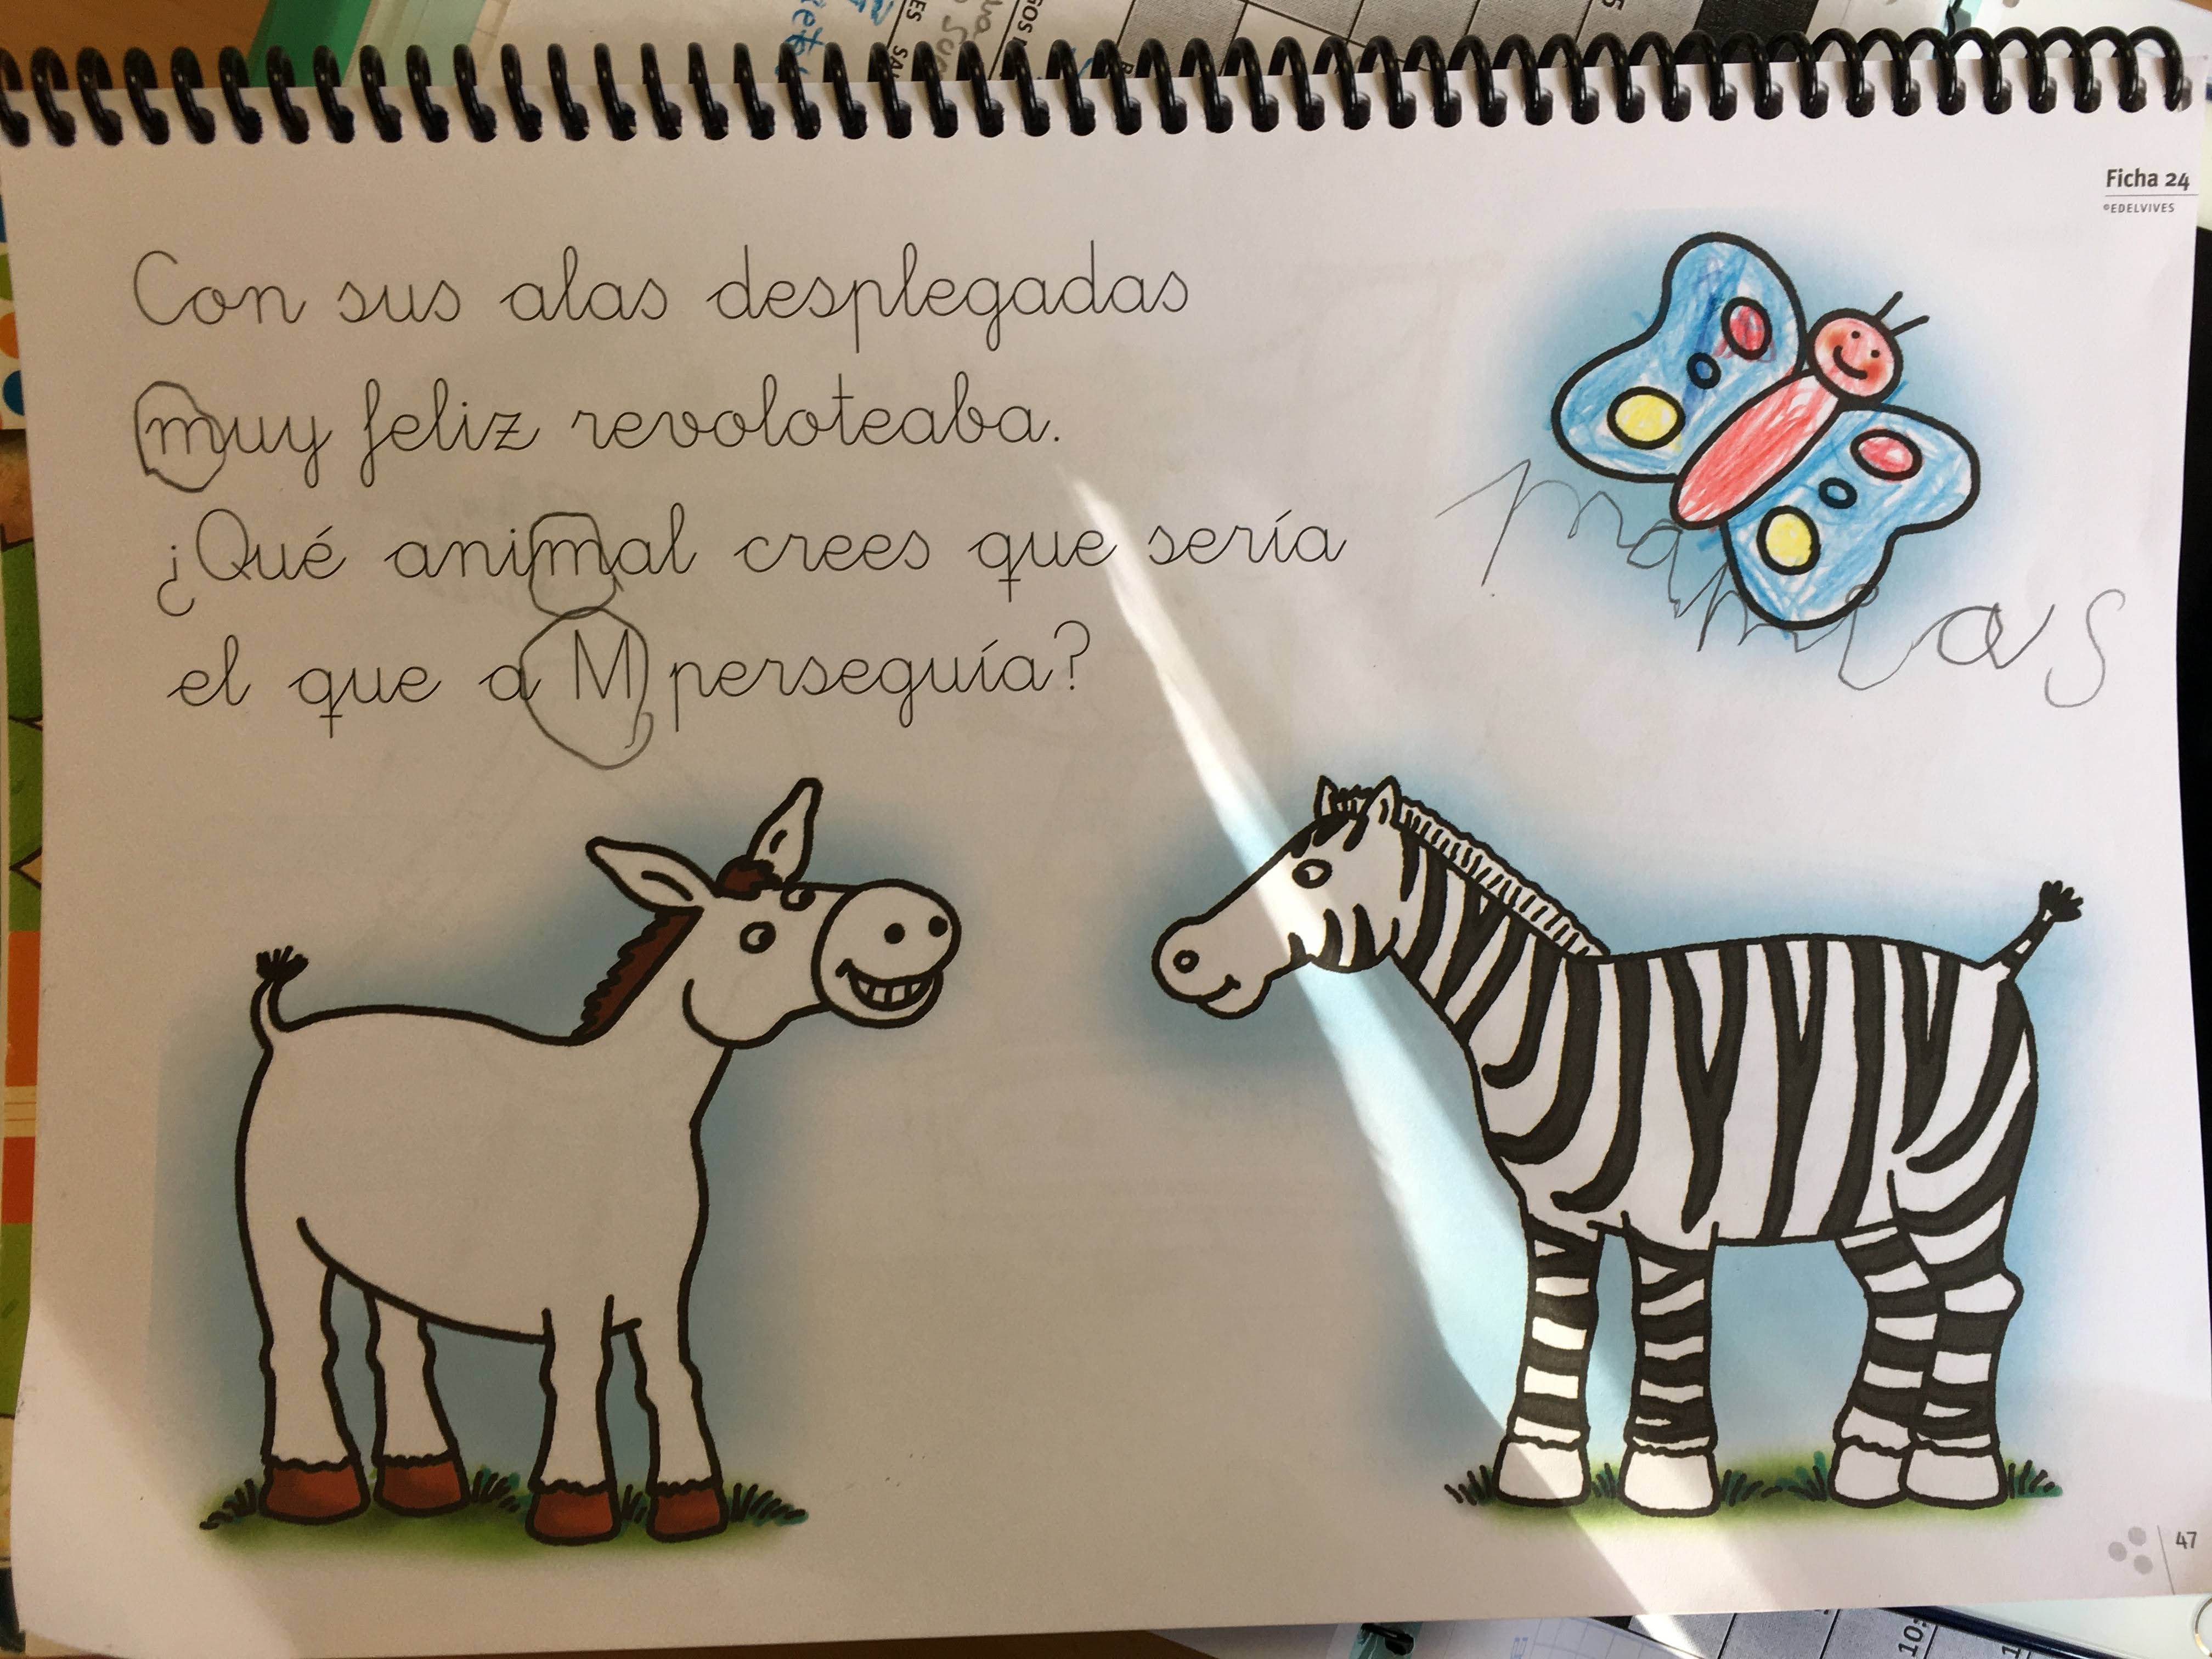 Ficha 24
©EDELVIVES
Con sus alas desplegadas
muy feliz revoloteaba.
¿Qué animal crees que sería
el que a M perseguía?
47